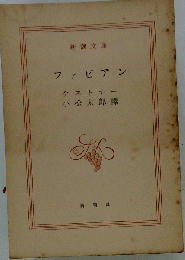 新潮文庫
ファビアン
ケストナー
小松太郎譯
新潮社